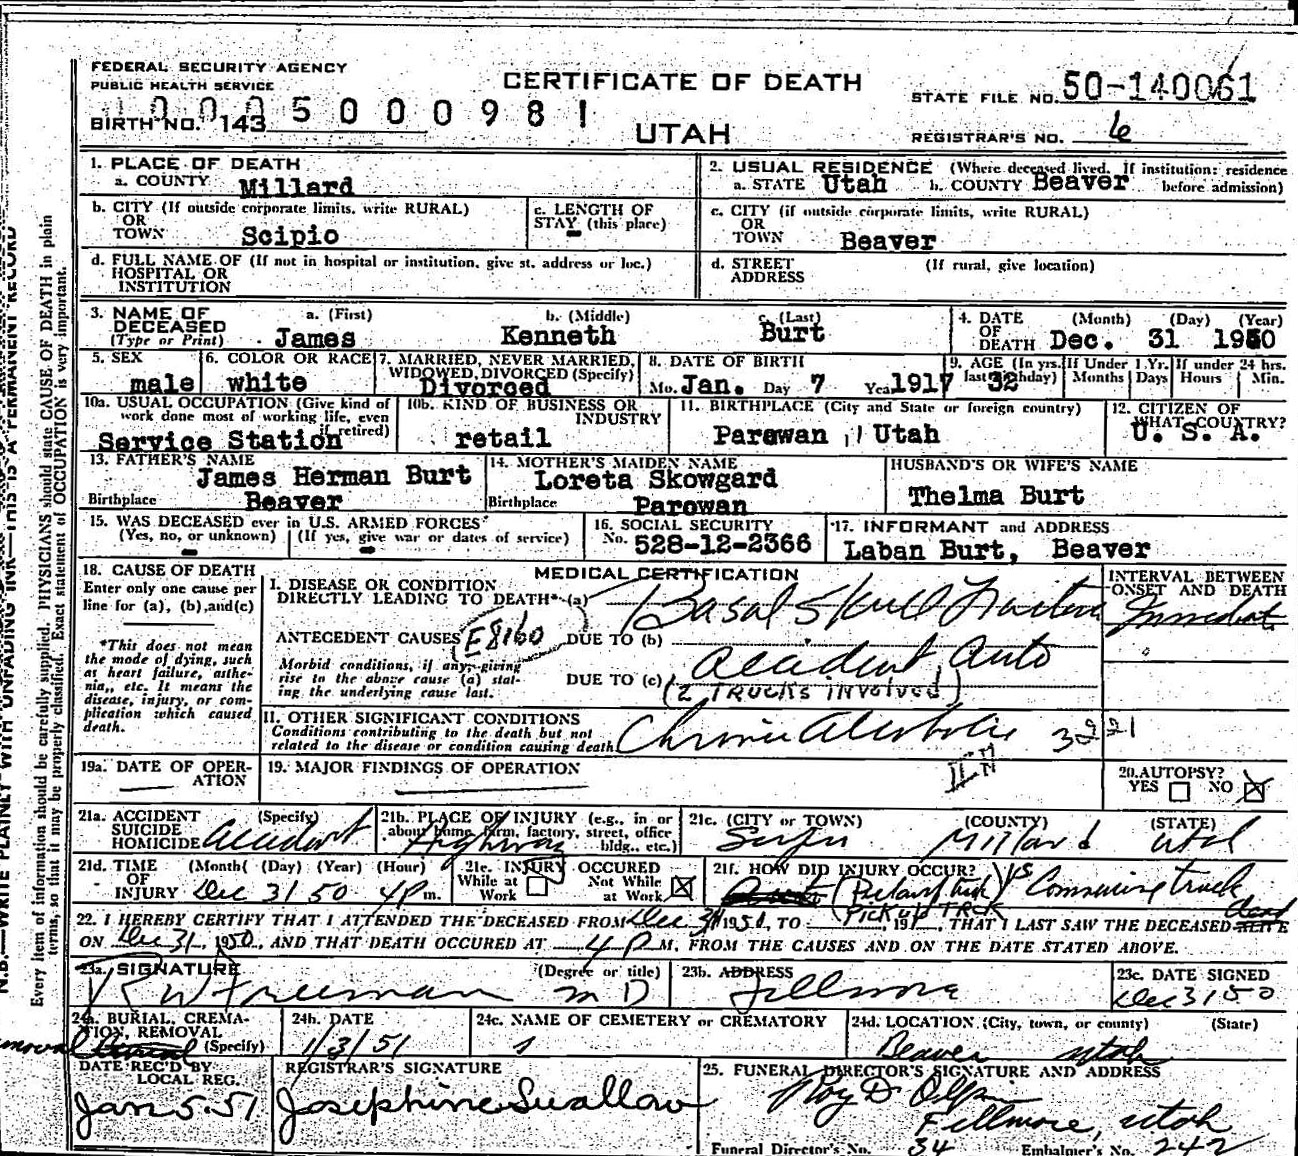 FEDERAL SECURITY AGENCY
PUBLIC HEALTH SERVICE
CERTIFICATE OF DEATH
UTAH
STATE FILE NO. 50-140061
BIRTH NO. 143 5000981
REGISTRAR'S NO. 6
N.B.—WRITE PLAINLY WITH UNFADING INK—THIS IS A PERMANENT RECORD
Every item of information should be carefully supplied. PHYSICIANS should state CAUSE OF DEATH in plain
terms, so that it may be properly classified. Exact statement of OCCUPATION is very important.
1. PLACE OF DEATH
a. COUNTY Millard
2. USUAL RESIDENCE (Where deceased lived. If institution: residence before admission)
a. STATE Utah b. COUNTY Beaver
b. CITY (If outside corporate limits, write RURAL)
OR TOWN Scipio
c. LENGTH OF STAY (this place) -
c. CITY (if outside corporate limits, write RURAL)
OR TOWN Beaver
d. FULL NAME OF (If not in hospital or institution, give st. address or loc.)
HOSPITAL OR INSTITUTION
d. STREET ADDRESS (If rural, give location)
3. NAME OF DECEASED (Type or Print)
a. (First) James b. (Middle) Kenneth c. (Last) Burt
4. DATE OF DEATH (Month) (Day) (Year) Dec. 31 1950
5. SEX male
6. COLOR OR RACE white
7. MARRIED, NEVER MARRIED, WIDOWED, DIVORCED (Specify) Divorced
8. DATE OF BIRTH Mo. Jan. Day 7 Year 1917
9. AGE (In yrs. last birthday) 32 If Under 1 Yr. Months Days If under 24 hrs. Hours Min.
10a. USUAL OCCUPATION (Give kind of work done most of working life, even if retired) Service Station
10b. KIND OF BUSINESS OR INDUSTRY retail
11. BIRTHPLACE (City and State or foreign country) Parowan, Utah
12. CITIZEN OF WHAT COUNTRY? U. S. A.
13. FATHER'S NAME James Herman Burt
Birthplace Beaver
14. MOTHER'S MAIDEN NAME Loreta Skowgard
Birthplace Parowan
HUSBAND'S OR WIFE'S NAME Thelma Burt
15. WAS DECEASED ever in U.S. ARMED FORCES?
(Yes, no, or unknown) - (If yes, give war or dates of service) -
16. SOCIAL SECURITY No. 528-12-2366
17. INFORMANT and ADDRESS Laban Burt, Beaver
18. CAUSE OF DEATH
Enter only one cause per line for (a), (b), and (c)
*This does not mean the mode of dying, such as heart failure, asthenia, etc. It means the disease, injury, or complication which caused death.
MEDICAL CERTIFICATION
INTERVAL BETWEEN ONSET AND DEATH
I. DISEASE OR CONDITION DIRECTLY LEADING TO DEATH* (a) Basal Skull Fracture Immediat
ANTECEDENT CAUSES E8160 DUE TO (b)
accident auto
Morbid conditions, if any, giving rise to the above cause (a) stating the underlying cause last. DUE TO (c) (2 TRUCKS INVOLVED)
II. OTHER SIGNIFICANT CONDITIONS
Conditions contributing to the death but not related to the disease or condition causing death Chronic Alcoholic 3221
19a. DATE OF OPERATION —
19. MAJOR FINDINGS OF OPERATION —
20. AUTOPSY? YES NO X
21a. ACCIDENT SUICIDE HOMICIDE (Specify) accident
21b. PLACE OF INJURY (e.g., in or about home, farm, factory, street, office bldg., etc.) Highway
21c. (CITY or TOWN) (COUNTY) (STATE) Scipio Millard Utah
21d. TIME OF INJURY (Month) (Day) (Year) (Hour) Dec 31 50 4 P m.
21e. INJURY OCCURED While at Work Not While at Work X
21f. HOW DID INJURY OCCUR? vs Commercial truck
(PICK up TRCK
22. I HEREBY CERTIFY THAT I ATTENDED THE DECEASED FROM Dec 31 1950, TO , 19 , THAT I LAST SAW THE DECEASED ALIVE dead
ON Dec 31, 1950, AND THAT DEATH OCCURED AT 4 P M, FROM THE CAUSES AND ON THE DATE STATED ABOVE.
23a. SIGNATURE (Degree or title) R W Freeman M D
23b. ADDRESS Fillmore
23c. DATE SIGNED Dec 31 50
24a. BURIAL, CREMATION, REMOVAL (Specify) Removal Burial
24b. DATE 1/3/51
24c. NAME OF CEMETERY or CREMATORY
24d. LOCATION (City, town, or county) (State) Beaver Utah
DATE REC'D BY LOCAL REG. Jan 5. 51
REGISTRAR'S SIGNATURE Josephine Swallow
25. FUNERAL DIRECTOR'S SIGNATURE AND ADDRESS Roy D Olpin
Fillmore, Utah
Funeral Director's No. 34 Embalmer's No. 242